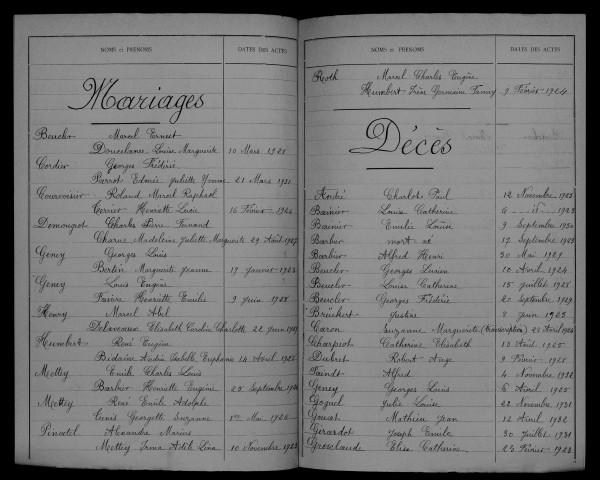 NOMS et PRÉNOMS DATES DES ACTES
Mariages
Beucler Marcel Ernest
Doucelance Louise Marguerite 10 Mars 1928
Cordier Georges Frédéric
Parrot Edmée Juliette Yvonne 21 Mars 1931
Courvoisier Roland Marcel Raphaël
Cerrier Henriette Lucie 16 Février 1924
Demougeot Charles Pierre Fernand
Charne Madeleine Juliette Marguerite 29 Août 1927
Geney Georges Louis
Bertin Marguerite Jeanne 19 Janvier 1923
Geney Louis Eugène
Faivre Henriette Emilie 9 Juin 1928
Henry Marcel Abel
Delaveaux Elisabeth Caroline Charlotte 22 Juin
Humbert René Eugène
Bidaine Andrée Isabelle Euphémie 14 Avril 1925
Mettey Emile Charles Louis
Barbier Henriette Eugénie 25 Septembre
Mettey René Emile Adolphe
Cenis Georgette Suzanne 1er Mai 1926
Pinostel Alexandre Marius
Mettey Irma Adèle Lina 10 Novembre 1923
NOMS et PRÉNOMS DATES DES ACTES
Roth Marcel Charles Eugène
Humbert Irène Germaine Fanny 9 Février 1924
Décès
André Charlotte Paul 12 Novembre 1925
Bainier Louise Catherine 6 - 1923
Bainier Emilie Louise 9 Septembre 1930
Barbier mort né 17 Septembre 1923
Barbier Alfred Henri 30 Mai 1929
Beucler Georges Lucien 10 Avril 1924
Beucler Louise Catherine 15 Juillet 1928
Beucler Georges Frédéric 20 Septembre 1929
Brückert Justine 8 Juin 1923
Caron Suzanne Marguerite (transcription) 28 Avril 1926
Charpiot Catherine Elisabeth 13 Avril 1925
Dubret Robert Ange 9 Février 1928
Faindt Alfred 4 Novembre 1922
Geney Georges Louis 6 Avril 1925
Goguel Julie Louise 22 Novembre 1931
Gouat Mathieu Jean 12 Avril 1932
Girardot Joseph Emile 30 Juillet 1931
Grosclaude Elise Catherine 25 Février 1923